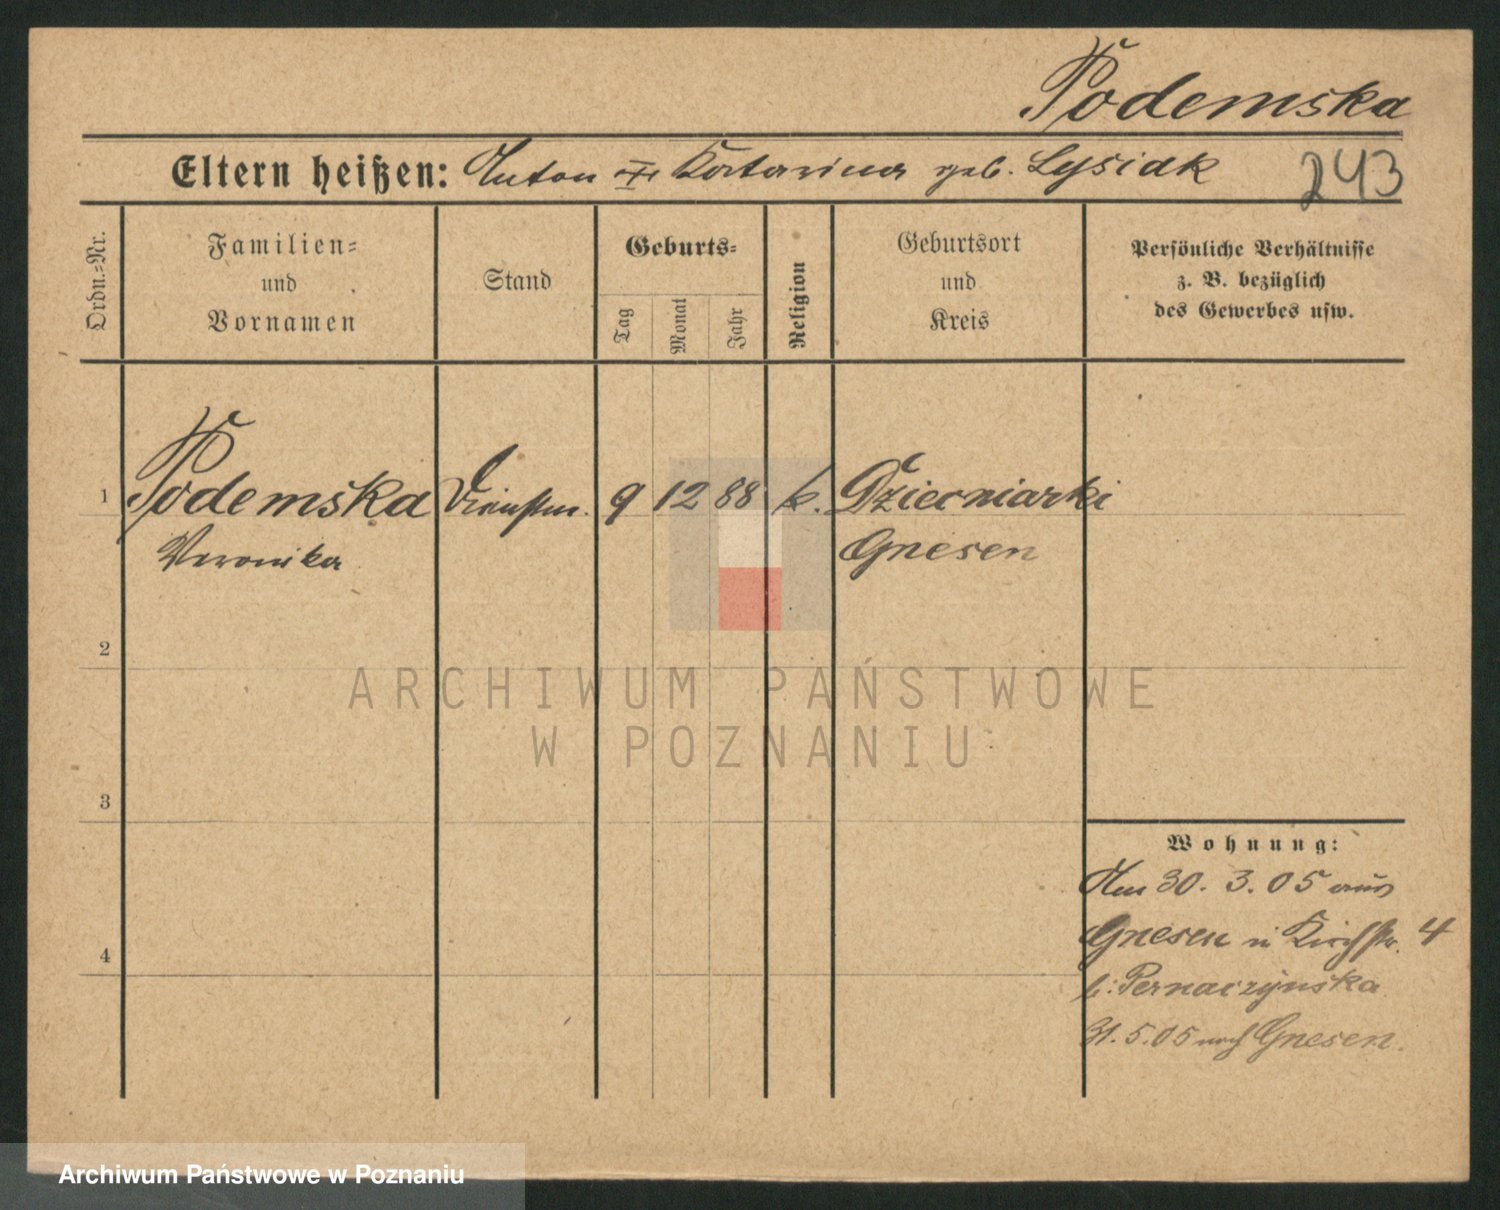 Podemska
Eltern heißen: Anton u. Katarina geb. Lysiak
243
Ordn.=Nr.
Familien=
und
Vornamen
Stand
Geburts=
Tag
Monat
Jahr
Religion
Geburtsort
und
Kreis
Persönliche Verhältnisse
z. B. bezüglich
des Gewerbes usw.
1 Podemska Dienstm. 9 12 88 k. Dziecmiarki
Veronika Gnesen
2
3
4
Wohnung:
Am 30. 3. 05 aus
Gnesen in Kirchstr. 4
b. Pernaczyńska
31. 5. 05 nach Gnesen.
ARCHIWUM PAŃSTWOWE
W POZNANIU
Archiwum Państwowe w Poznaniu